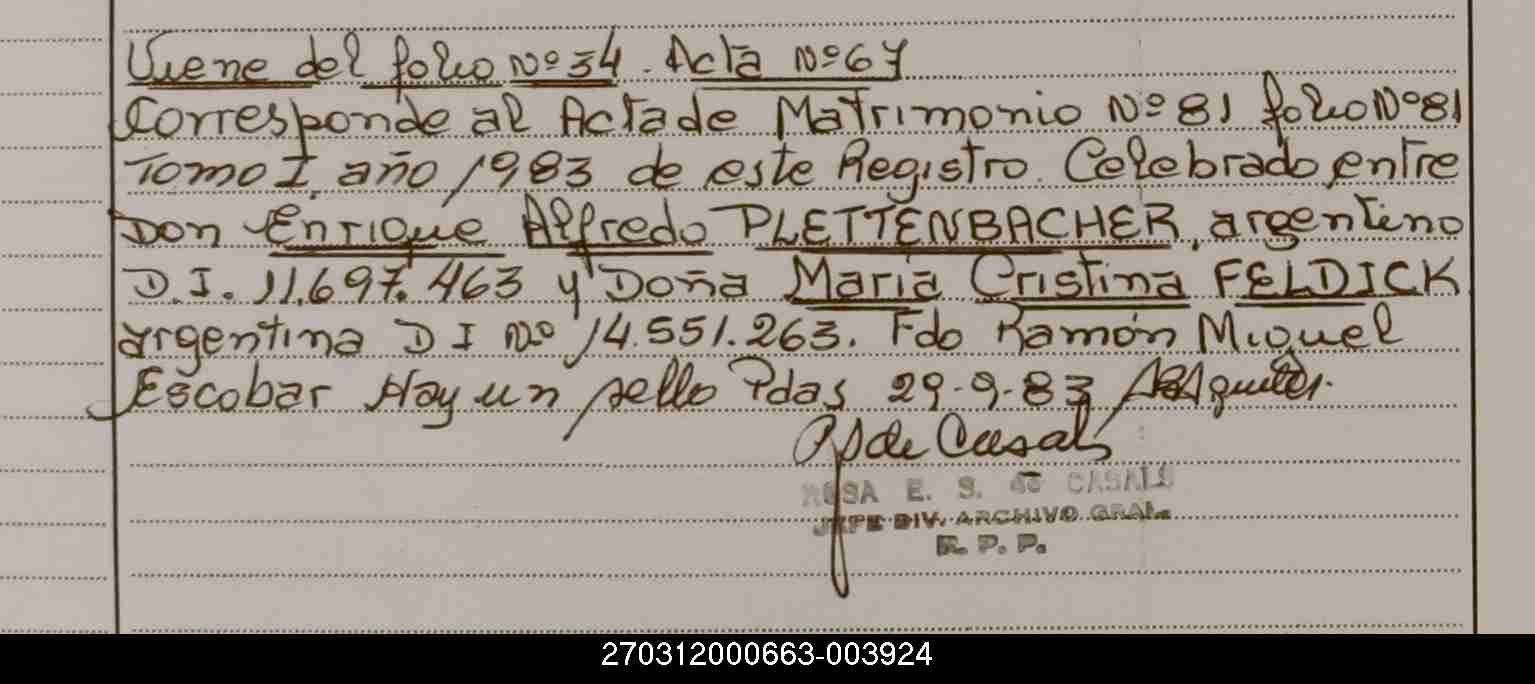 Viene del folio Nº 34. Acta Nº 67
Corresponde al Acta de Matrimonio Nº 81 folio Nº 81
Tomo I, año 1983 de este Registro. Celebrado entre
Don Enrique Alfredo PLETTENBACHER, argentino
D.I. 11.697.463 y Doña Maria Cristina FELDICK
argentina D I Nº 14.551.263. Fdo Ramón Miguel
Escobar Hay un sello Pdas 29-9-83
de Casals
ROSA E. S. de CASALS
JEFE DIV. ARCHIVO GRAL.
R. P. P.
270312000663-003924